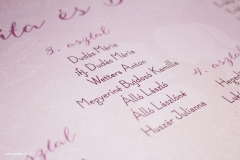 ita és B
3. asztal
Dudás Mária
ifj. Dudás Mária
Wetters Anton
Megyeriné Bujdosó Kamilla
Álló László
Álló Lászlóné
Huszár Julianna
4. asztal
Hor
Lak